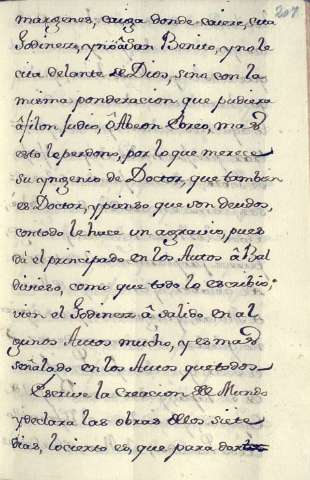 207.
margenes, caiga donde caiere, cita
Godinez, y no â San Benito, y no le
cita delante de Dios, sino con la
misma ponderacion que pudiera
â filon Judio, ô Abeon Ebreo, mas
esto le perdono, por lo que merece
su yngenio de Doctor, que tambien
es Doctor, y pienso que son deudos,
contodo le hace un agravio, pues
dá el principado en los Autos â Bal
divieso, como que todo lo escribio;
vien el Godinez â salido en al
gunos Autos mucho, y es mas
señalado en los Autos que todos
Escrive la Creacion del Mundo
y declara las obras de los siete
dias, lo cierto es, que para dar